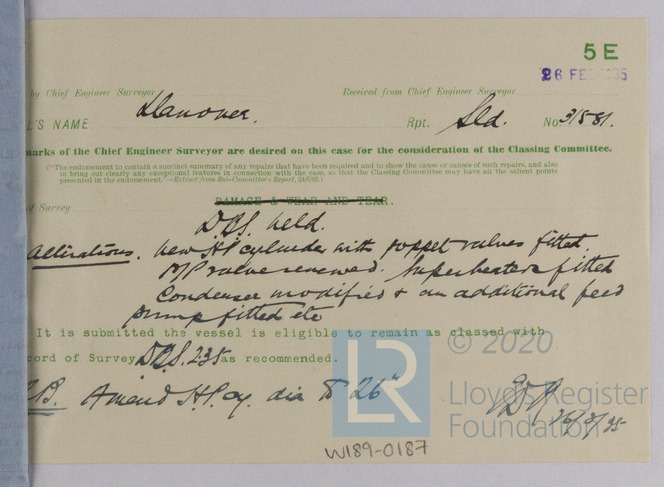 5 E
26 FEB 1935
by Chief Engineer Surveyor Received from Chief Engineer Surveyor
L'S NAME Hanover. Rpt. Sld. No 31581.
marks of the Chief Engineer Surveyor are desired on this case for the consideration of the Classing Committee.
("The endorsement to contain a succinct summary of any repairs that have been required and to show the cause or causes of such repairs, and also
to bring out clearly any exceptional features in connection with the case, so that the Classing Committee may have all the salient points
presented in the endorsement."—Extract from Sub-Committee's Report, 24/5/02.)
of Survey DAMAGE & WEAR AND TEAR.
DBS held.
Alterations. New HP cylinder with poppet valves fitted.
MP valve renewed. Superheaters fitted
Condenser modified & an additional feed
pump fitted etc
It is submitted the vessel is eligible to remain as classed with
cord of Survey DBS. 2.35 as recommended.
N.B. Amend H.P. cy. dia to 26"
26/2/35
LR
© 2020
Lloyd's Register
Foundation
W189-0187